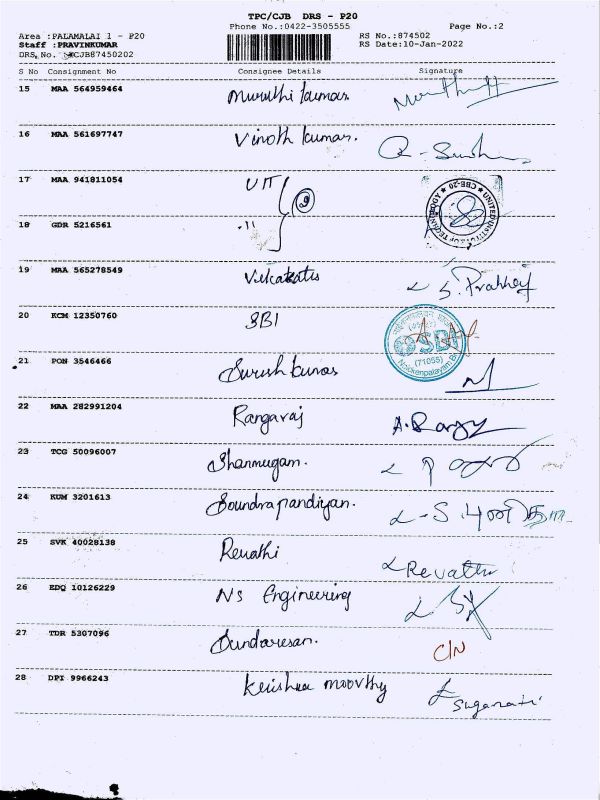 TPC/CJB DRS - P20
Phone No.:0422-3505555 Page No.:2
Area :PALAMALAI 1 - P20 RS No.:874502
Staff :PRAVINKUMAR RS Date:10-Jan-2022
DRS No. :*CJB87450202
S No Consignment No Consignee Details Signature
15 MAA 564959464 Muruthi kumar
16 MAA 561697747 Vinoth kumar.
17 MAA 941811054 UIT
UNITED INSTITUTE OF TECHNOLOGY ★ CBE-20 ★
18 GDR 5216561 -11-
19 MAA 565278549
20 KCM 12350760 SBI
SBI
(71055)
21 PON 3546466 Suresh kumar
22 MAA 282991204 Rangaraj
23 TCG 50096007 Shanmugam.
24 KUM 3201613 Soundrapandiyan.
25 SVK 40028138 Revathi Revathi
26 EDQ 10126229 NS Engineering
27 TDR 5307096 Sundaresan. C/N
28 DPI 9966243 Krishna moorthy